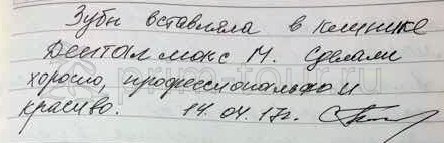 Зубы вставляла в клинике
Дентал макс М. Сделали
хорошо, профессионально и
красиво. 14.04.17г.
prim-tour.ru